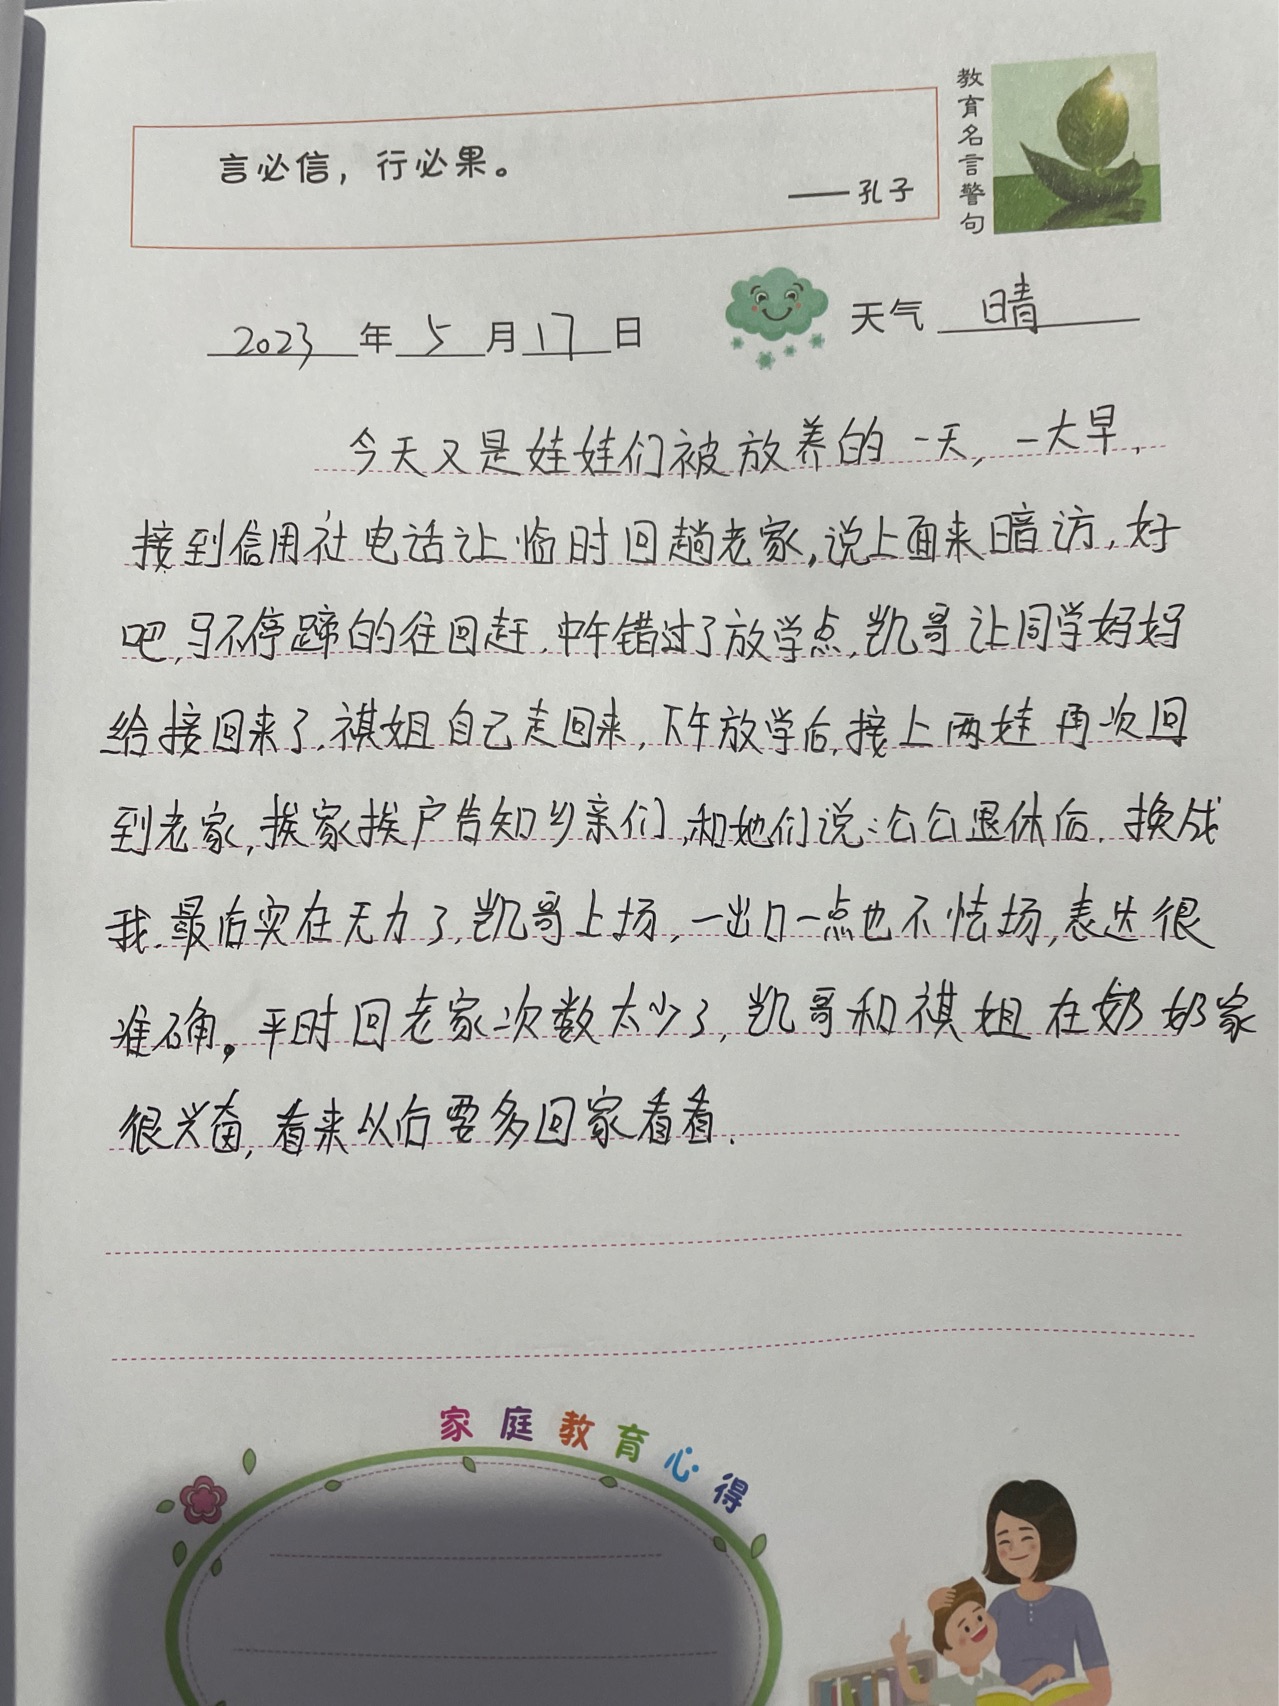 教育名言警句
言必信，行必果。
——孔子
2023年5月17日 天气 晴
今天又是娃娃们被放养的一天，一大早，
接到信用社电话让临时回趟老家，说上面来暗访，好
吧，马不停蹄的往回赶，中午错过了放学点，凯哥让同学妈妈
给接回来了，祺姐自己走回来，下午放学后，接上两娃再次回
到老家，挨家挨户告知乡亲们，和她们说：公公退休后，换成
我，最后实在无力了，凯哥上场，一出口一点也不怯场，表达很
准确。平时回老家次数太少了，凯哥和祺姐在奶奶家
很兴奋，看来以后要多回家看看.
家庭教育心得